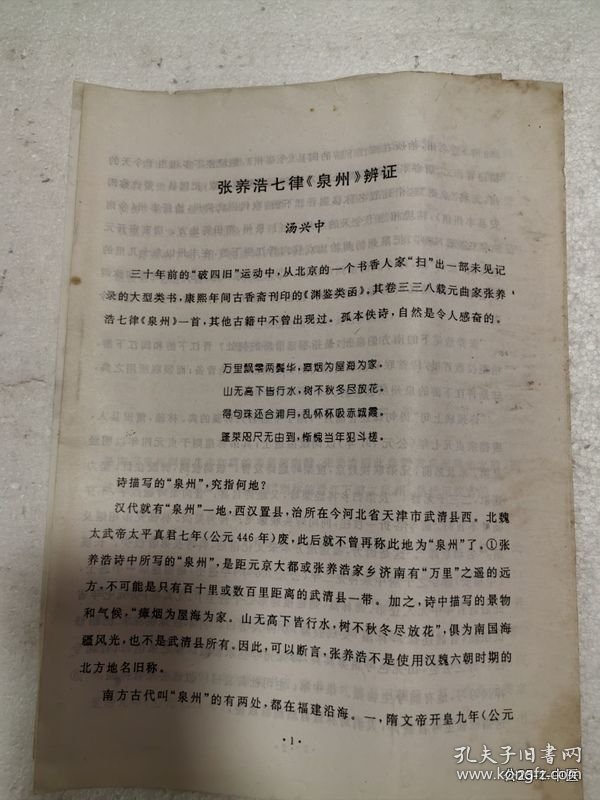 张养浩七律《泉州》辨证
汤兴中
三十年前的“破四旧”运动中，从北京的一个书香人家“扫”出一部未见记
录的大型类书，康熙年间古香斋刊印的《渊鉴类函》。其卷三三八载元曲家张养
浩七律《泉州》一首，其他古籍中不曾出现过。孤本佚诗，自然是令人感奋的。
万里飘零两鬓华，瘴烟为屋海为家。
山无高下皆行水，树不秋冬尽放花。
得句珠还合浦月，乱怀杯吸赤城霞。
蓬莱咫尺无由到，惭愧当年犯斗槎。
诗描写的“泉州”，究指何地？
汉代就有“泉州”一地，西汉置县，治所在今河北省天津市武清县西。北魏
太武帝太平真君七年（公元446年）废，此后就不曾再称此地为“泉州”了。①张
养浩诗中所写的“泉州”，是距元京大都或张养浩家乡济南有“万里”之遥的远
方，不可能是只有百十里或数百里距离的武清县一带。加之，诗中描写的景物
和气候，“瘴烟为屋海为家。山无高下皆行水，树不秋冬尽放花”，俱为南国海
疆风光，也不是武清县所有。因此，可以断言，张养浩不是使用汉魏六朝时期的
北方地名旧称。
南方古代叫“泉州”的有两处，都在福建沿海。一，隋文帝开皇九年（公元
·1·
孔夫子旧书网
www.kongfz.com